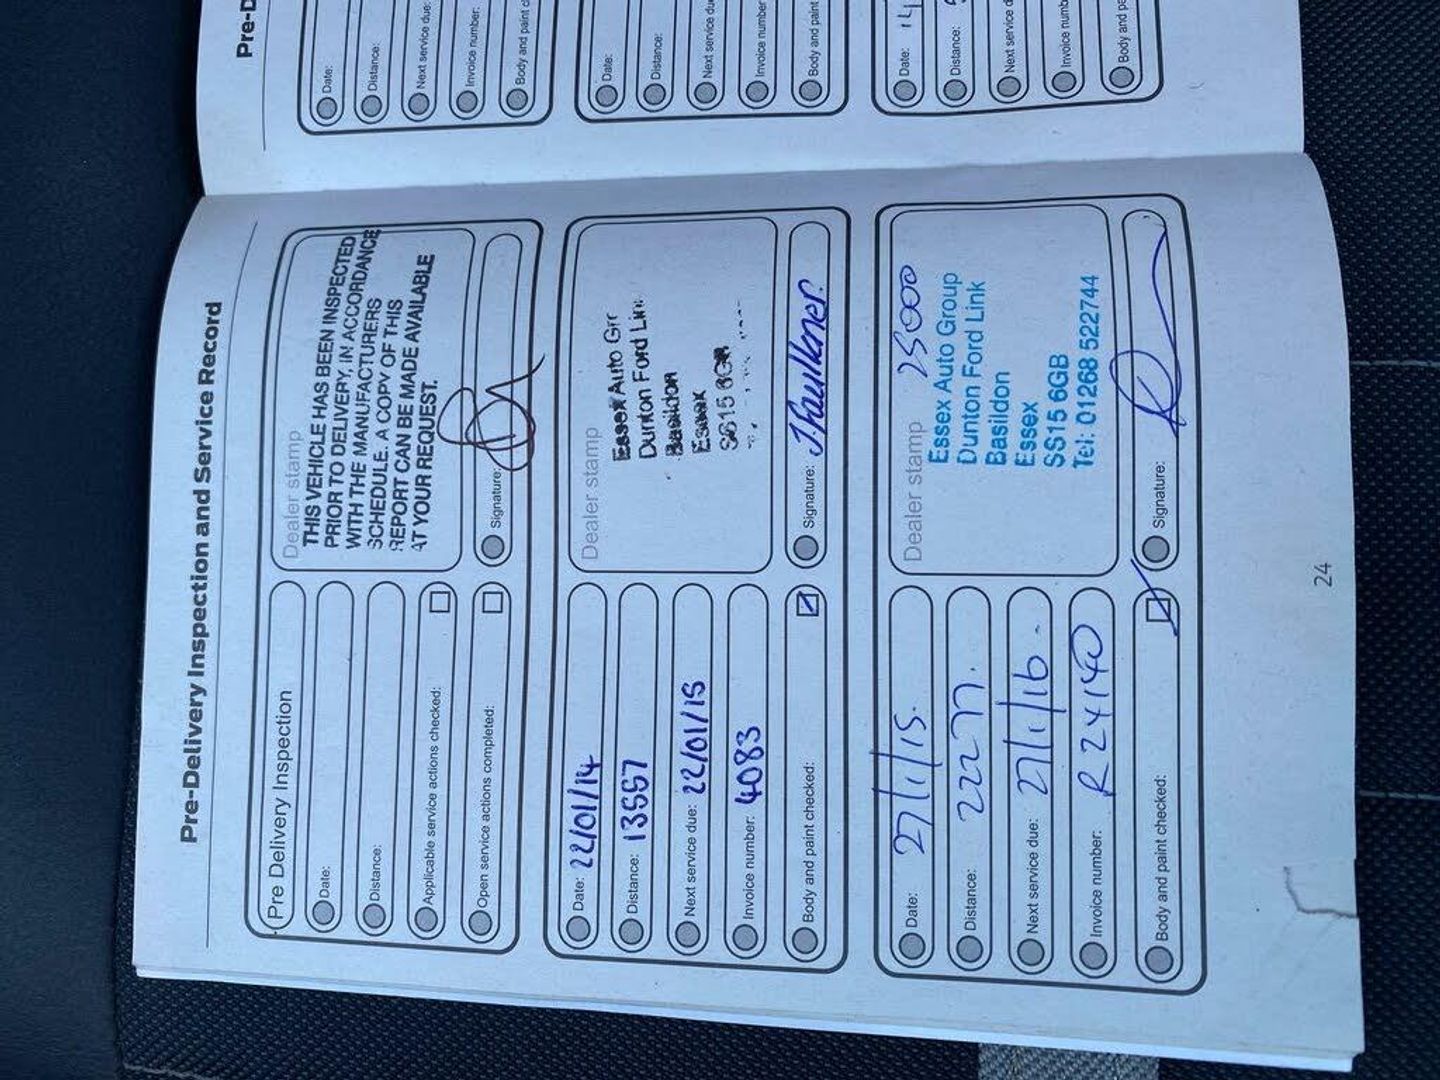 Pre-Delivery Inspection and Service Record
Pre Delivery Inspection
Date:
Distance:
Applicable service actions checked:
Open service actions completed:
Dealer stamp
THIS VEHICLE HAS BEEN INSPECTED
PRIOR TO DELIVERY, IN ACCORDANCE
WITH THE MANUFACTURERS
SCHEDULE. A COPY OF THIS
REPORT CAN BE MADE AVAILABLE
AT YOUR REQUEST.
Signature:
Date: 22/01/14
Distance: 13557
Next service due: 22/01/15
Invoice number: 4083
Body and paint checked:
Dealer stamp
Essex Auto Gr
Dunton Ford Lin
Basildon
Essex
SS15 6GB
Signature: J. Faulkner.
Date: 27/1/15.
Distance: 22277.
Next service due: 27/1/16-
Invoice number: R24140
Body and paint checked:
Dealer stamp 25000
Essex Auto Group
Dunton Ford Link
Basildon
Essex
SS15 6GB
Tel: 01268 522744
Signature:
24
Pre-D
Date:
Distance:
Next service due:
Invoice number:
Body and paint c
Date:
Distance:
Next service du
Invoice number
Body and paint
Date: 14
Distance:
Next service d
Invoice numb
Body and pa